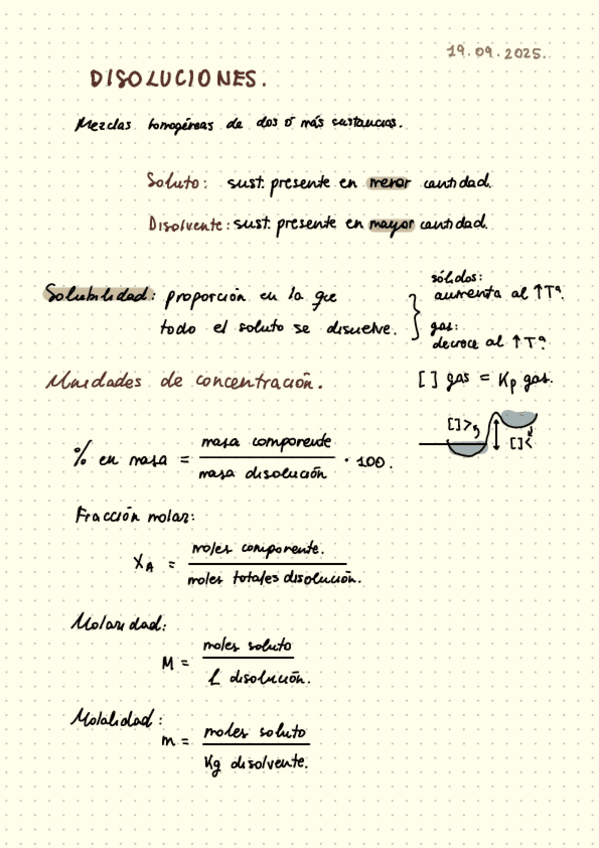 19.09.2025.
DISOLUCIONES.
Mezclas homogéneas de dos o más sustancias.
Soluto: sust. presente en menor cantidad.
Disolvente: sust. presente en mayor cantidad.
Solubilidad: proporción en la que
todo el soluto se disuelve.
sólidos:
aumenta al ↑Tª.
gas:
decrece al ↑Tª.
Unidades de concentración.
[ ] gas = Kp gas.
[ ]>
[ ]<
% en masa = masa componente / masa disolución · 100.
Fracción molar:
XA = moles componente. / moles totales disolución.
Molaridad:
M = moles soluto / L disolución.
Molalidad:
m = moles soluto / Kg disolvente.